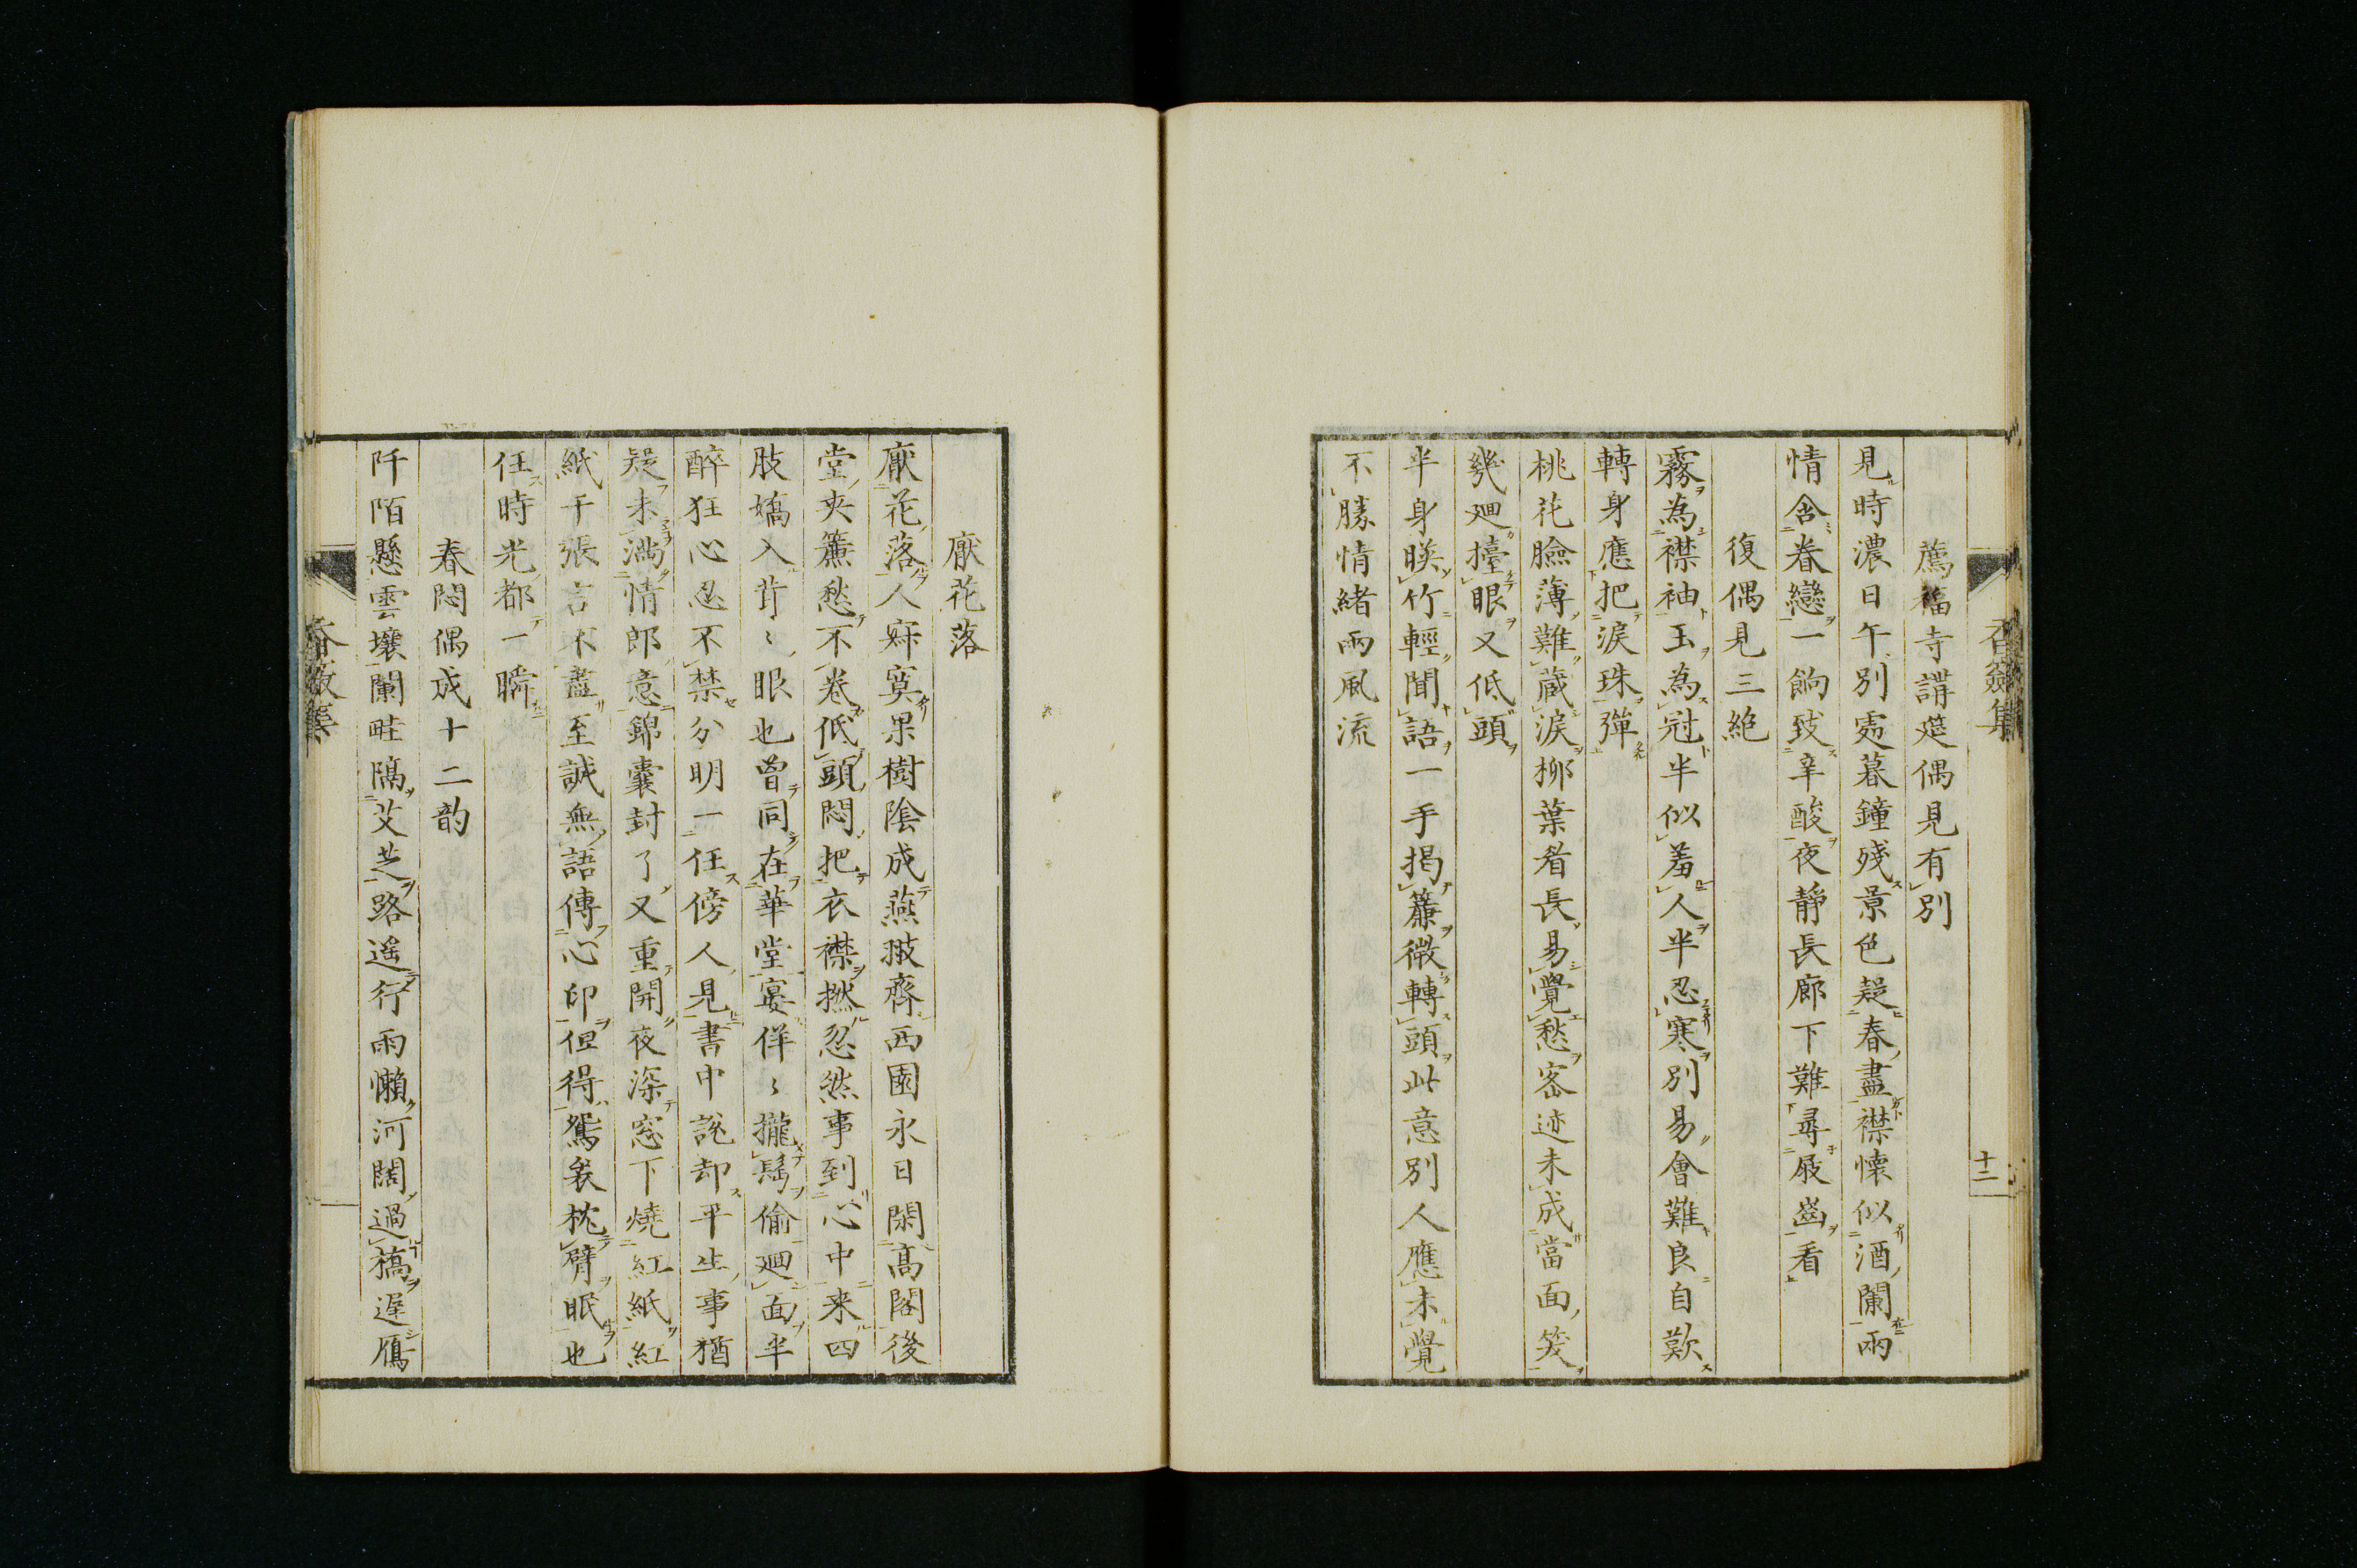 香奩集
十二
薦福寺講筵偶見有別
見時濃日午別處暮鐘殘景色疑春盡襟懷似酒闌兩
情含眷戀一餉致辛酸夜靜長廊下難尋屐齒看
復偶見三絶
霧為襟袖玉為冠半似羞人半忍寒別易會難良自歎
轉身應把淚珠彈
桃花臉薄難藏淚柳葉眉長易覺愁密迹未成當面笑
幾廻擡眼又低頭
半身映竹輕聞語一手揭簾微轉頭此意別人應未覺
不勝情緒兩風流
厭花落
厭花落人寂寞果樹陰成燕翅齊西園永日閑高閣後
堂夾簾愁不卷低頭悶把衣襟撚忽然事到心中来四
肢嬌入茸〻眼也曽同在華堂宴佯〻攏鬢偷廻面半
醉狂心忍不禁分明一任傍人見書中說却平生事猶
疑未滿情郎意錦囊封了又重開夜深窓下燒紅紙紅
紙千張言不盡至誠無語傳心印但得鴛鴦枕臂眠也
任時光都一瞬
春悶偶成十二韵
阡陌懸雲壤闌畦隔艾芝路遥行雨懶河闊過橋遲鴈
香奩集